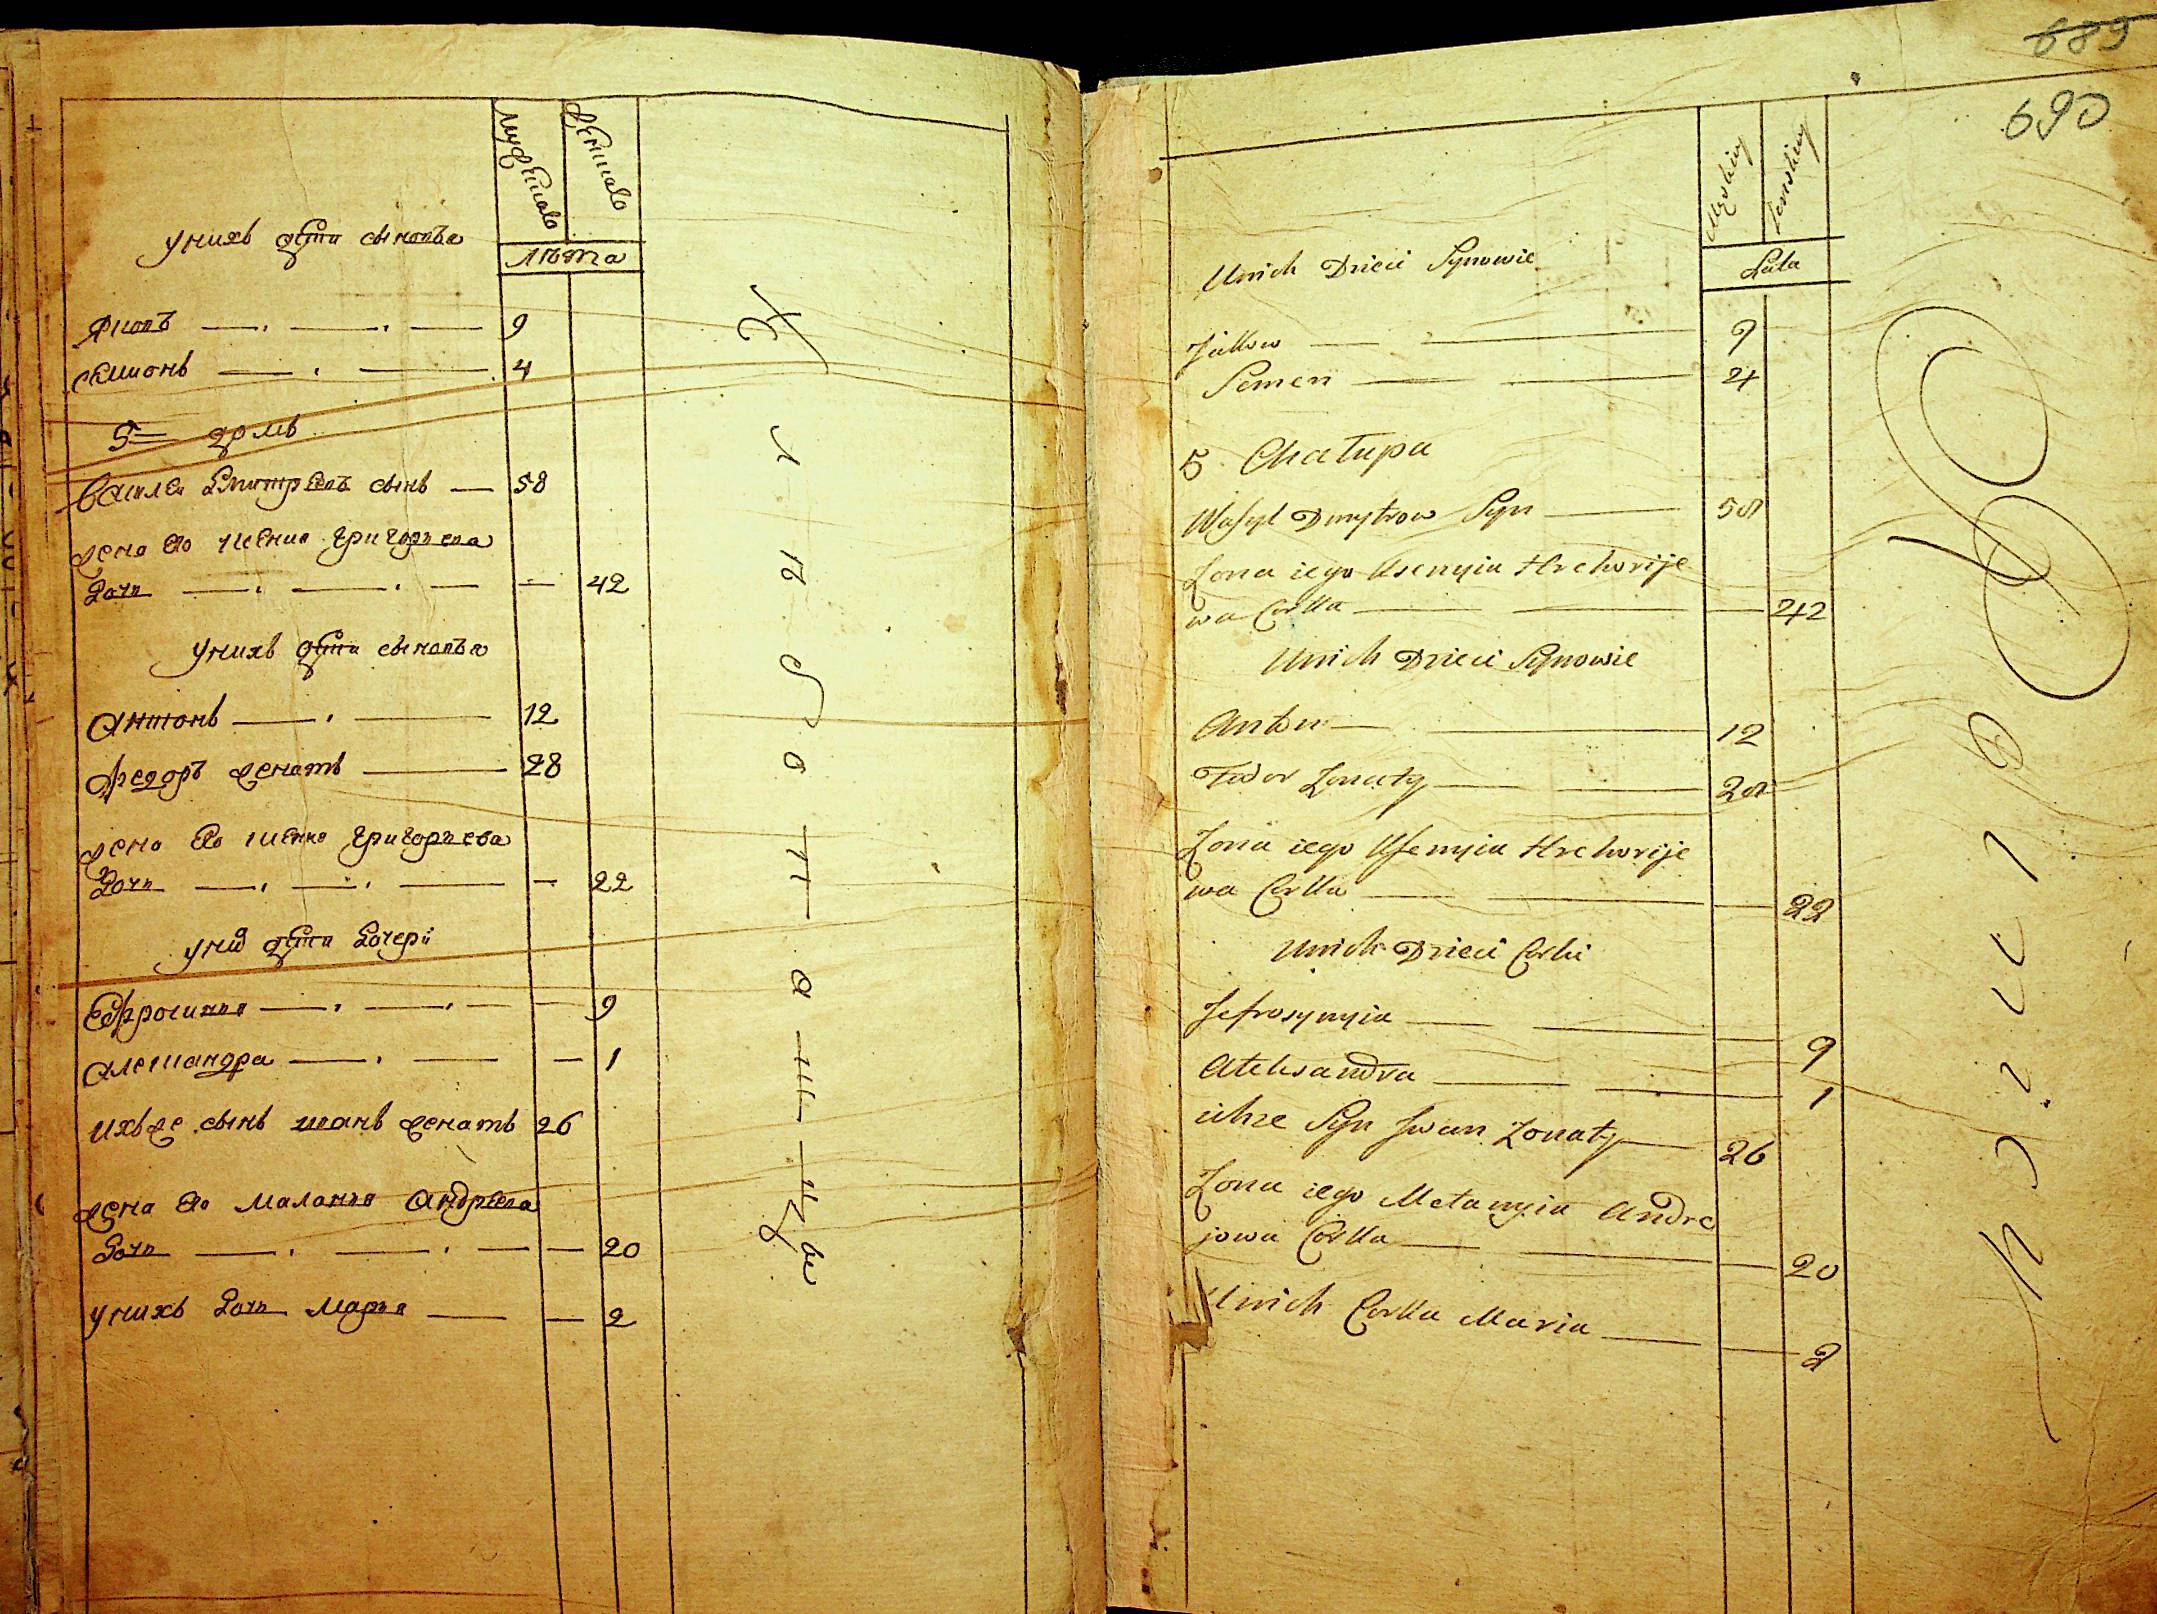 мужеска
женска
лѣта
у нихъ дѣти сыновья
Яковъ 9
семионъ 4
5 домъ
василей Дмитрѣевъ сынъ 58
жена его ксения григорьева
Дочь 42
у нихъ дѣти сыновья
Антонъ 12
федоръ женатъ 28
жена его ксения григорьева
Дочь 22
у них дѣти Дочери
Ефросиния 9
Александра 1
ихъ же сынъ иванъ женатъ 26
жена его маланья Андрѣева
Дочь 20
у нихъ Дочь марья 2
689
690
Męskiey
Żenskiey
Lata
Unich Dzieci Synowie
Jakow 9
Semen 4
5 Chałupa
Wasyl Dmytrow Syn 58
Żona iego Ksenyia Hrehorije
wa Corka 42
Unich Dzieci Synowie
Anton 12
Fedor Żonaty 28
Żona iego Ksenyia Hrehorije
wa Corka 22
Unich Dzieci Corki
Jefrosynyia 9
Aleksandra 1
ichże Syn Jwan Żonaty 26
Żona iego Mełanyia Andre
jowa Corka 20
Unich Corka Maria 2